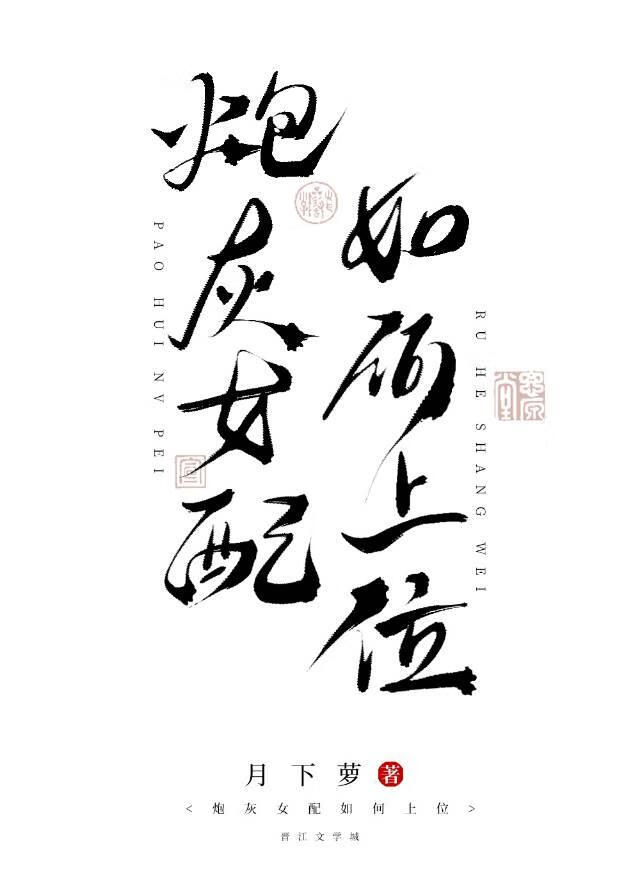 炮灰女配
PAO HUI NV PEI
如何上位
RU HE SHANG WEI
月下萝 著
<炮灰女配如何上位>
晋江文学城